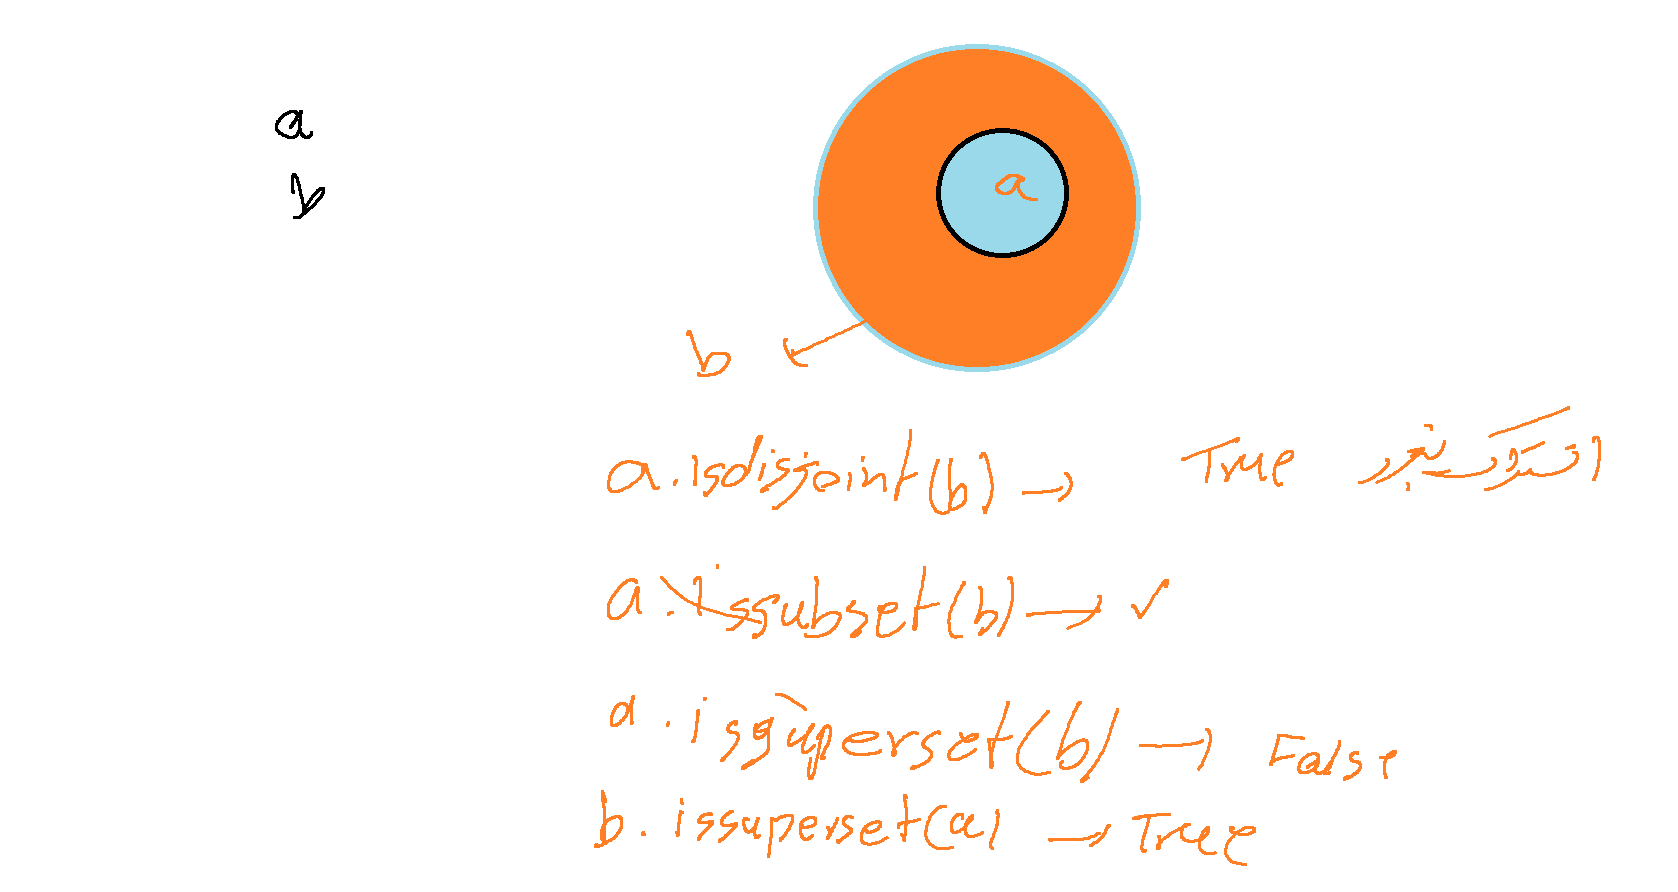 a
b
a
b
a.isdisjoint(b) → True اشتراک ندارد
a.issubset(b) → ✓
a.issuperset(b) → False
b.issuperset(a) → True